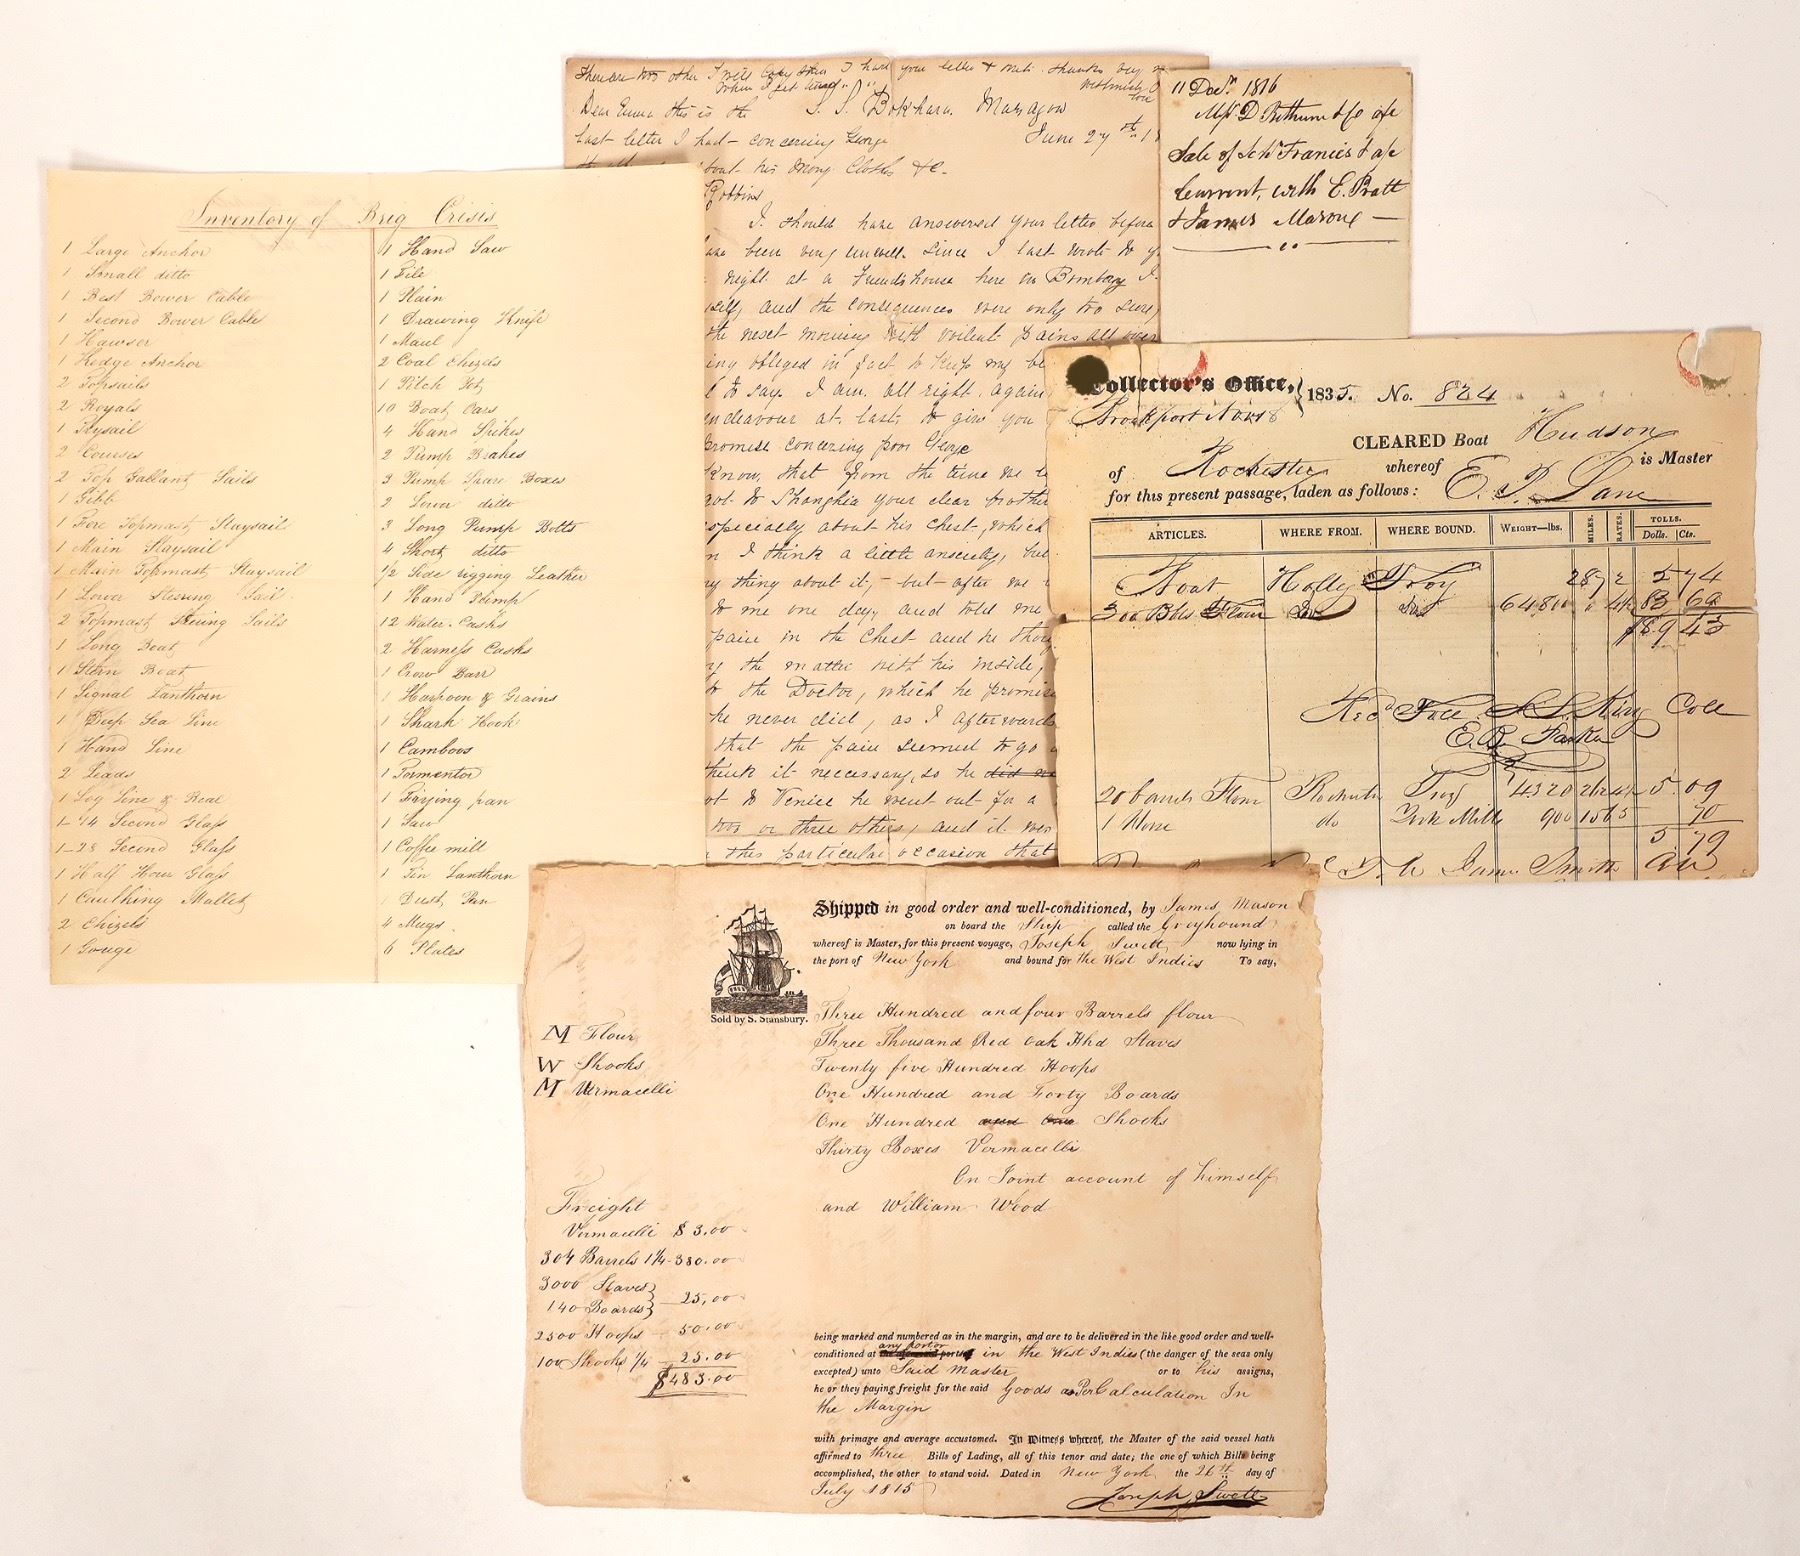 Inventory of Brig Crisis
1 Large Anchor
1 Small ditto
1 Best Bower Cable
1 Second Bower Cable
1 Hawser
1 Kedge Anchor
2 Topsails
2 Royals
1 Trysail
2 Courses
2 Top Gallant Sails
1 Gibb
1 Fore Topmast Staysail
1 Main Staysail
1 Main Topmast Staysail
1 Lower Steering Sail
2 Topmast Steering Sails
1 Long Boat
1 Stern Boat
1 Signal Lanthorn
1 Deep Sea Line
1 Hand Line
2 Leads
1 Log Line & Real
1-14 Second Glass
1-28 Second Glass
1 Half Hour Glass
1 Caulking Mallet
2 Chizels
1 Gouge
1 Hand Saw
1 File
1 Plain
1 Drawing Knife
1 Maul
2 Coal Chizels
1 Pitch Pot
10 Boat Oars
4 Hand Spikes
2 Pump Brakes
3 Pump Spare Boxes
2 Lower ditto
3 Long Pump Bolts
4 Short ditto
1/2 Side rigging Leather
1 Hand Pump
12 Water Casks
2 Harness Casks
1 Crow Barr
1 Harpoon & Grains
1 Shark Hook
1 Camboos
1 Tormentor
1 Frying pan
1 Saw
1 Coffee mill
1 Tin Lanthorn
1 Dust Pan
4 Mugs
6 Plates
There are two other I will Copy then I had your letter &
when I get
Dear Emma this is the
last letter I had - concering George
S. S. Bokhara. Mazagon
June 27th 1
about his Mony Clothes &c-
Robbins
I. should have answered your letter before
have been very unwell. since I last wrote to y
night at a Friends house here in Bombay I
self, and the consequences were only too sure,
the next morning with voilent pains all over
ing obliged in fact to keep my be
to say. I am. all right again
endeavour at last, to give you
promise concering poor George
know, that from the time we le
got to Shanghia your dear brother
specially about his chest, which
n I think a little anxiety, but
ny thing about it,- but- after we
to me one day, and told me
pain in the chest and he thou
y the matter with his inside,
to the Doctor, which he promise
he never did, as I afterwards
that the pain seemed to go
think it neccessary, so he did no
ot to Venice he went out for a
two or three others, and it was
this particular occasion that
11 Decr 1816
Sale of Schr Francis & a/c
Current, with E. Pratt
& James Masone —
Collector's Office, } 1835. No. 824
Brockport Nov 18
CLEARED Boat Hudson
of Rochester whereof E. P. Lane is Master
for this present passage, laden as follows:
ARTICLES. WHERE FROM. WHERE BOUND. WEIGHT—lbs. MILES. RATES. TOLLS.
Dolls. Cts.
Boat Holley Troy 287 2 5 74
300 Bbls Flour Do Do 64800 " 4½ 83 69
$89 43
Recd Toll S. S. King Coll
E. B. Parker
20 barrels Flour Rochester Troy 4320 262 4½ 5.09
1 Horse do York Mills 900 156 5 70
5 79
James Smith
Shipped in good order and well-conditioned, by James Mason
on board the Ship called the Greyhound
whereof is Master, for this present voyage, Joseph Swett now lying in
the port of New York and bound for the West Indies To say,
Sold by S. Stansbury.
M Flour
W Shooks
M Vermacelli
Three Hundred and four Barrels flour
Three Thousand Red oak Hhd Staves
Twenty five Hundred Hoops
One Hundred and Forty Boards
One Hundred and One Shooks
Thirty Boxes Vermacelli
On Joint account of himself
and William Wood
Freight
Vermacelli $3.00
304 Barrels 1¼-380.00
3000 Staves }
140 Boards } 25,00
2500 Hoops 50.00
100 Shooks ¼ 25.00
$483.00
being marked and numbered as in the margin, and are to be delivered in the like good order and well-
conditioned at any port or in the West Indies (the danger of the seas only
excepted) unto Said Master or to his assigns,
he or they paying freight for the said Goods as Per Calculation In
the Margin
with primage and average accustomed. In Witness whereof, the Master of the said vessel hath
affirmed to three Bills of Lading, all of this tenor and date; the one of which Bills being
accomplished, the other to stand void. Dated in New York the 26th day of
July 1815
Joseph Swett